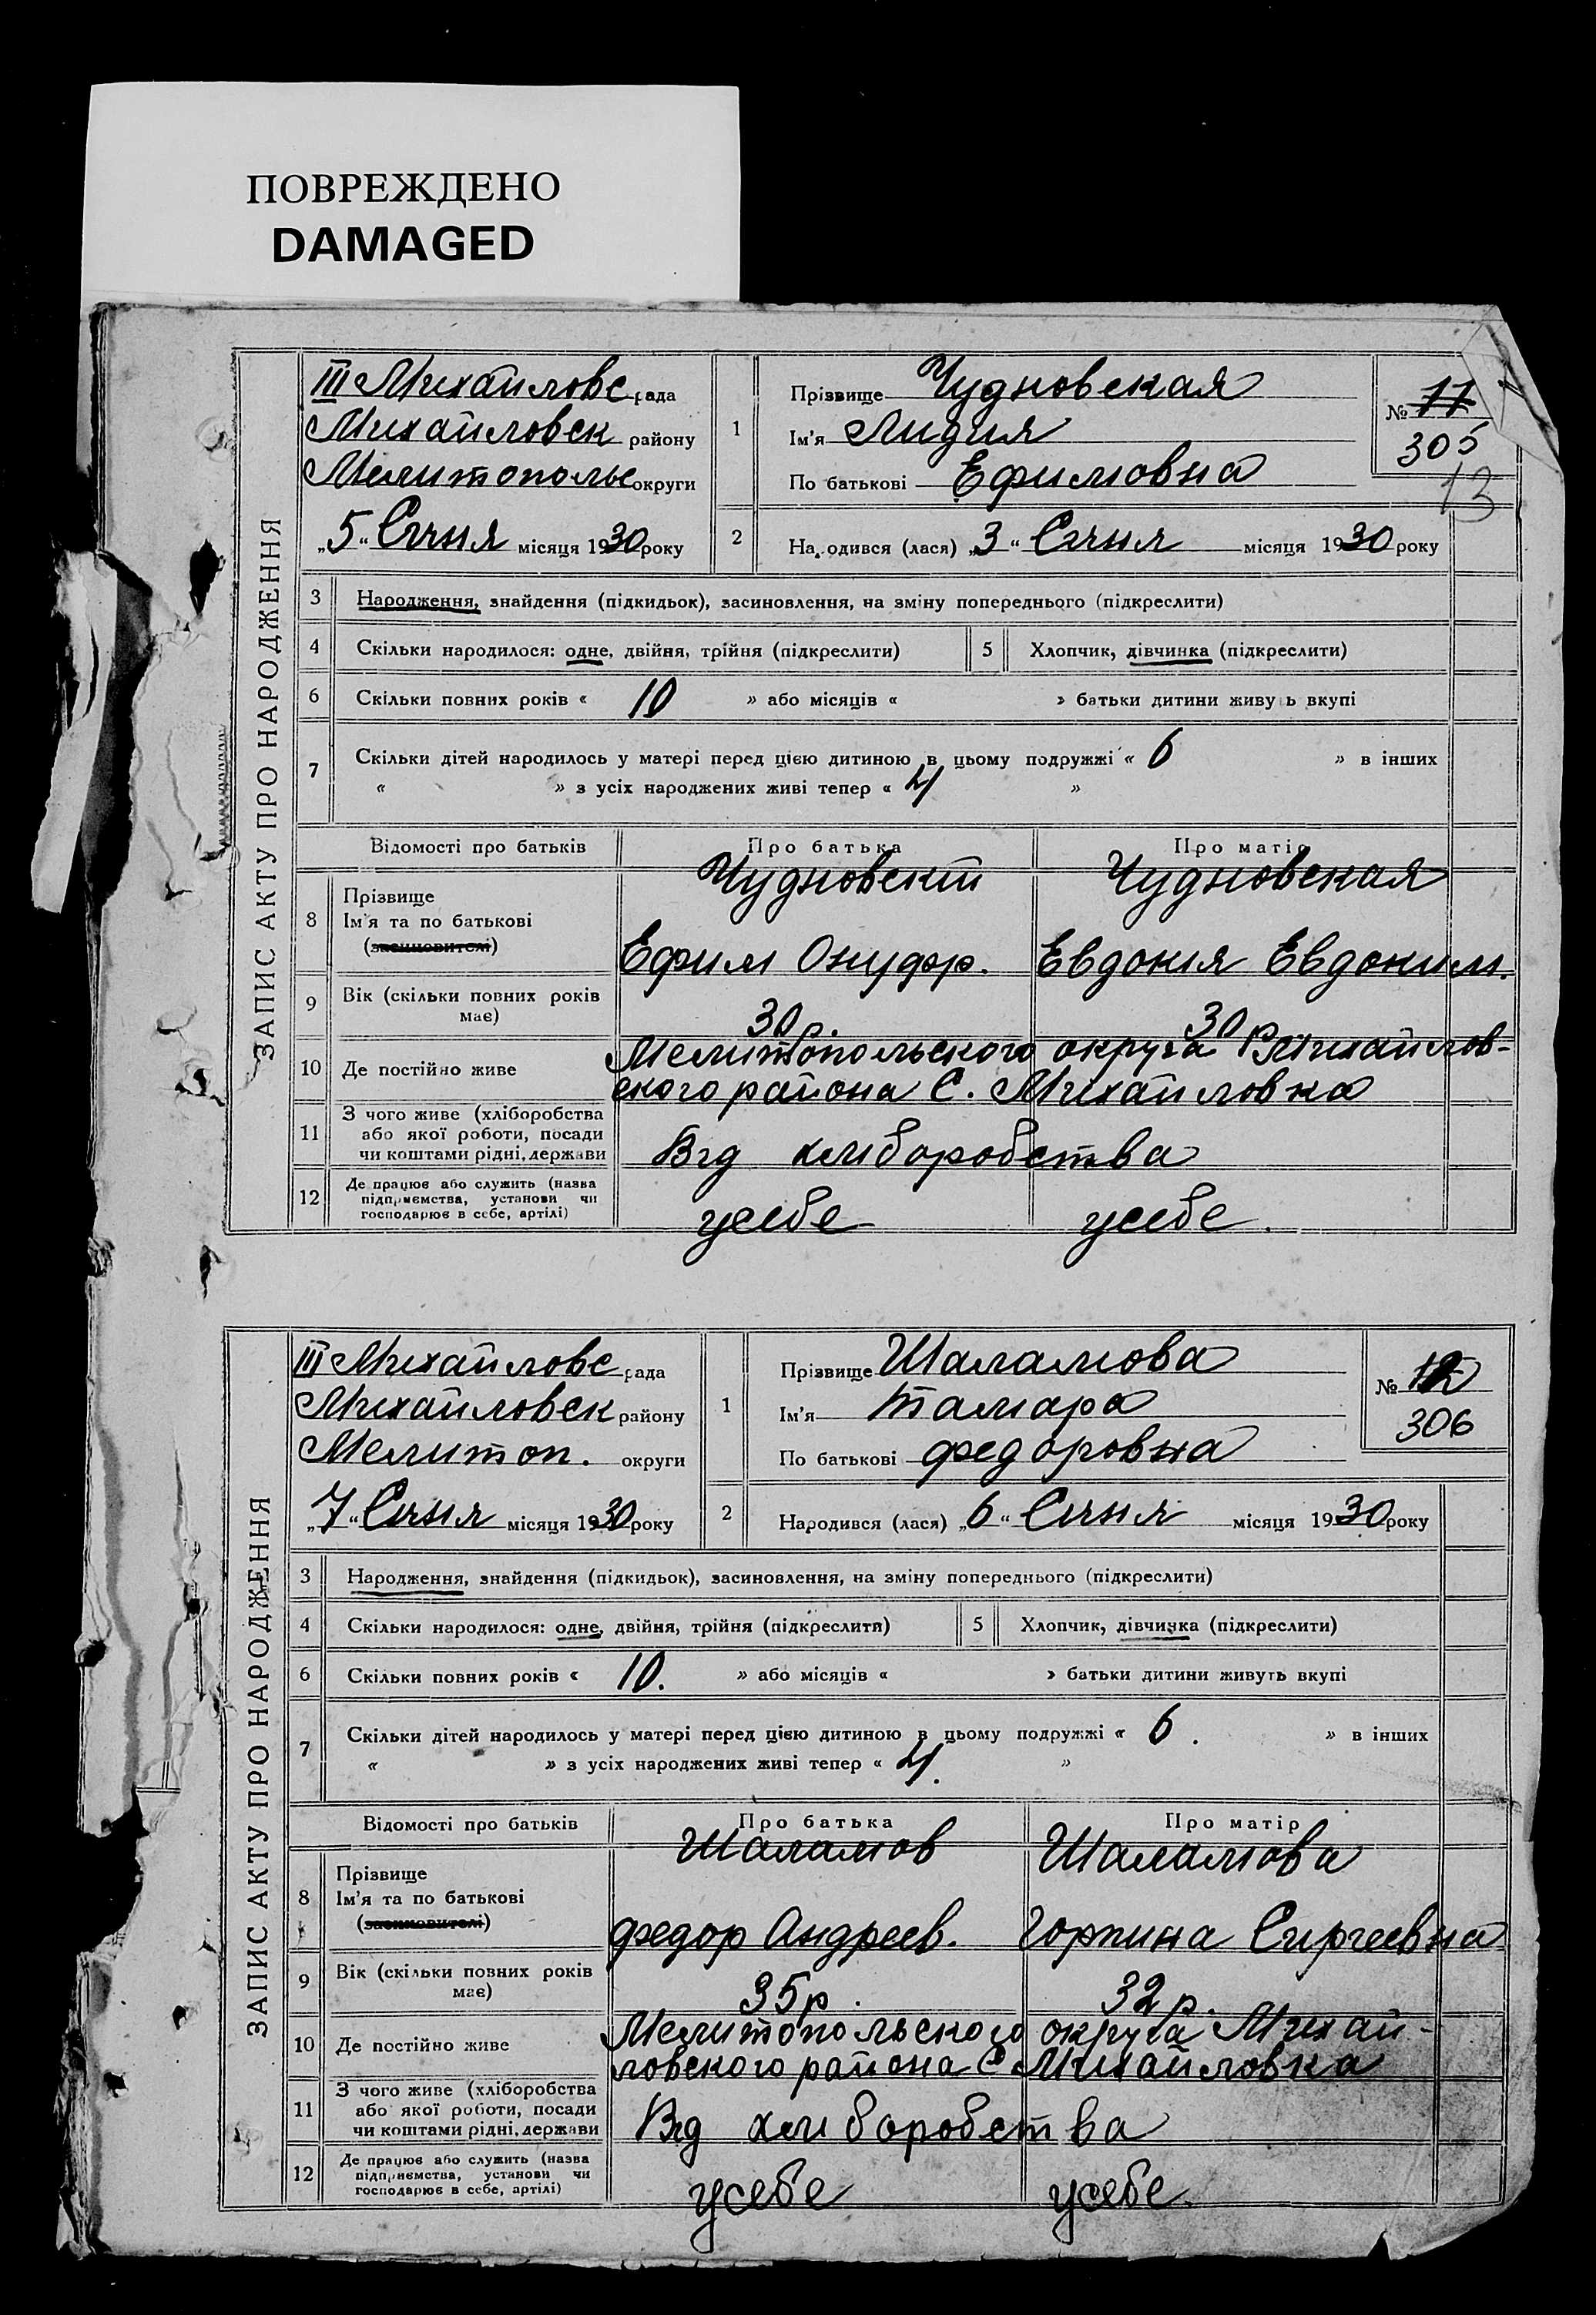 ПОВРЕЖДЕНО
DAMAGED
ЗАПИС АКТУ ПРО НАРОДЖЕННЯ
III Михайловс рада
Михайловск району
Мелитопольс округи
„5“ Січня місяця 1930 року
1
Прізвище Чудновская
Ім'я Лидия
По батькові Ефимовна
№ 11
305
13
2
Народився (лася) „3“ Січня місяця 1930 року
3 Народження, знайдення (підкидьок), засиновлення, на зміну попереднього (підкреслити)
4 Скільки народилося: одне, двійня, трійня (підкреслити) 5 Хлопчик, дівчинка (підкреслити)
6 Скільки повних років « 10 » або місяців « » батьки дитини живу ь вкупі
7 Скільки дітей народилось у матері перед цією дитиною в цьому подружжі « 6 » в інших
« » з усіх народжених живі тепер « 4 »
Відомості про батьків Про батька Про матір
8 Прізвище Чудновский Чудновская
Ім'я та по батькові
(засиновителі) Ефим Онуфр. Евдокия Евдоким.
9 Вік (скільки повних років
має) 30 р. 30 р.
10 Де постійно живе Мелитопольского округа Михайлов-
ского района С. Михайловка
11 З чого живе (хліборобства
або якої роботи, посади
чи коштами рідні, держави Від хліборобства
12 Де працює або служить (назва
підприємства, установи чи
господарює в себе, артілі) усебе усебе.
ЗАПИС АКТУ ПРО НАРОДЖЕННЯ
III Михайловс рада
Михайловск району
Мелитоп. округи
„7“ Січня місяця 1930 року
1
Прізвище Шаламова
Ім'я Тамара
По батькові Федоровна
№ 12
306
2
Народився (лася) „6“ Січня місяця 1930 року
3 Народження, знайдення (підкидьок), засиновлення, на зміну попереднього (підкреслити)
4 Скільки народилося: одне, двійня, трійня (підкреслити) 5 Хлопчик, дівчинка (підкреслити)
6 Скільки повних років « 10. » або місяців « » батьки дитини живуть вкупі
7 Скільки дітей народилось у матері перед цією дитиною в цьому подружжі « 6. » в інших
« » з усіх народжених живі тепер « 4. »
Відомості про батьків Про батька Про матір
8 Прізвище Шаламов Шаламова
Ім'я та по батькові
(засиновителі) Федор Андреев. Горпина Сергеевна
9 Вік (скільки повних років
має) 35 р. 32 р.
10 Де постійно живе Мелитопольского округа Михай-
ловского района С Михайловка
11 З чого живе (хліборобства
або якої роботи, посади
чи коштами рідні, держави Від хліборобства
12 Де працює або служить (назва
підприємства, установи чи
господарює в себе, артілі) усебе усебе.